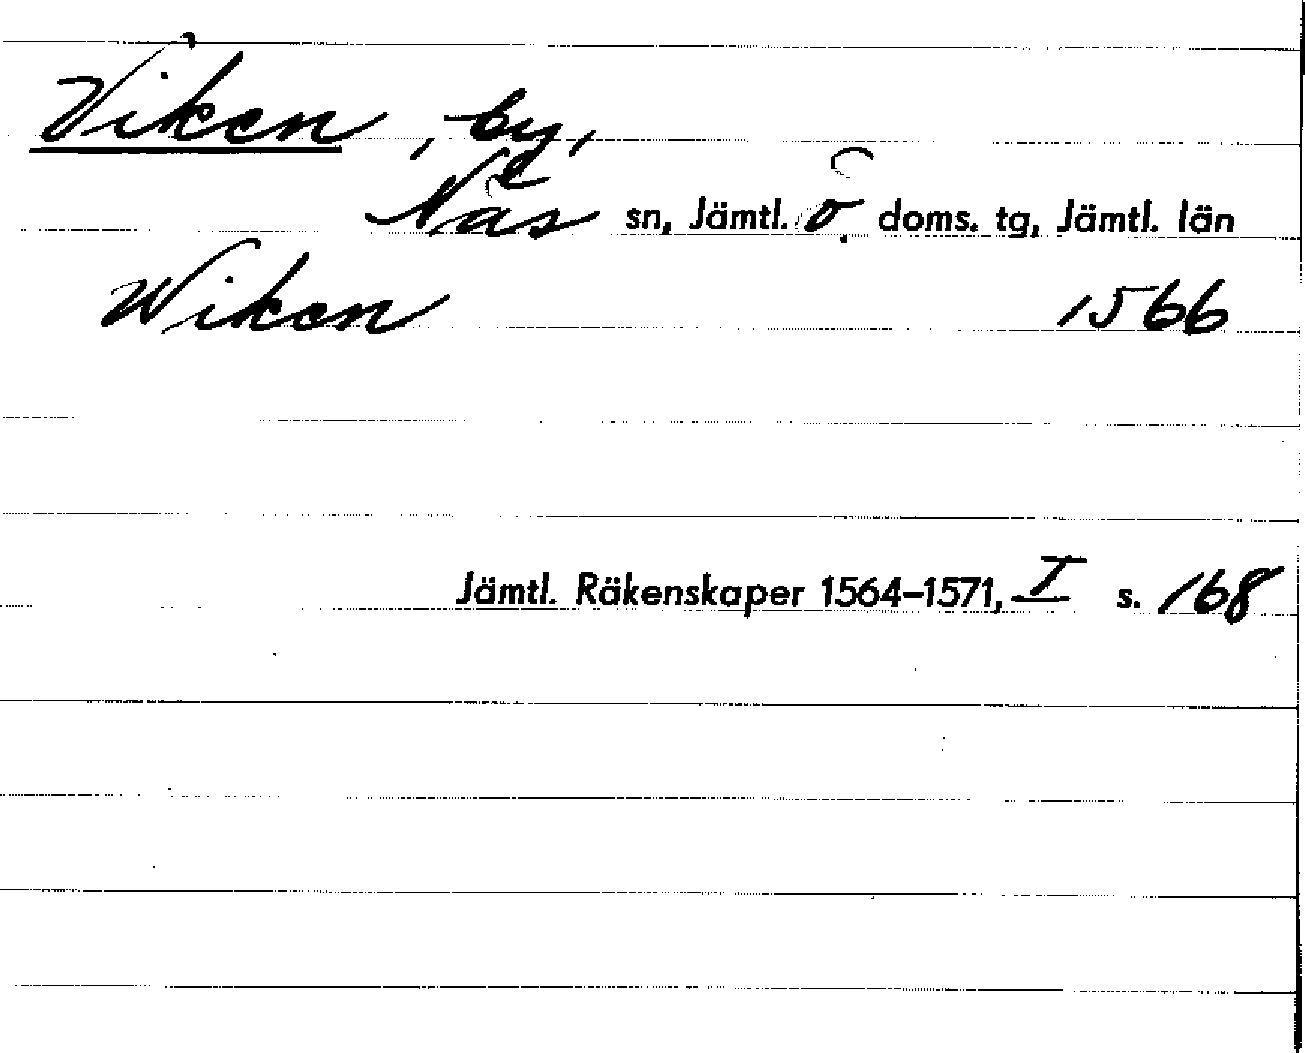 Viken, by,
Näs sn, Jämtl. ö. doms. tg, Jämtl. län
Wiken 1566
Jämtl. Räkenskaper 1564–1571, I s. 168